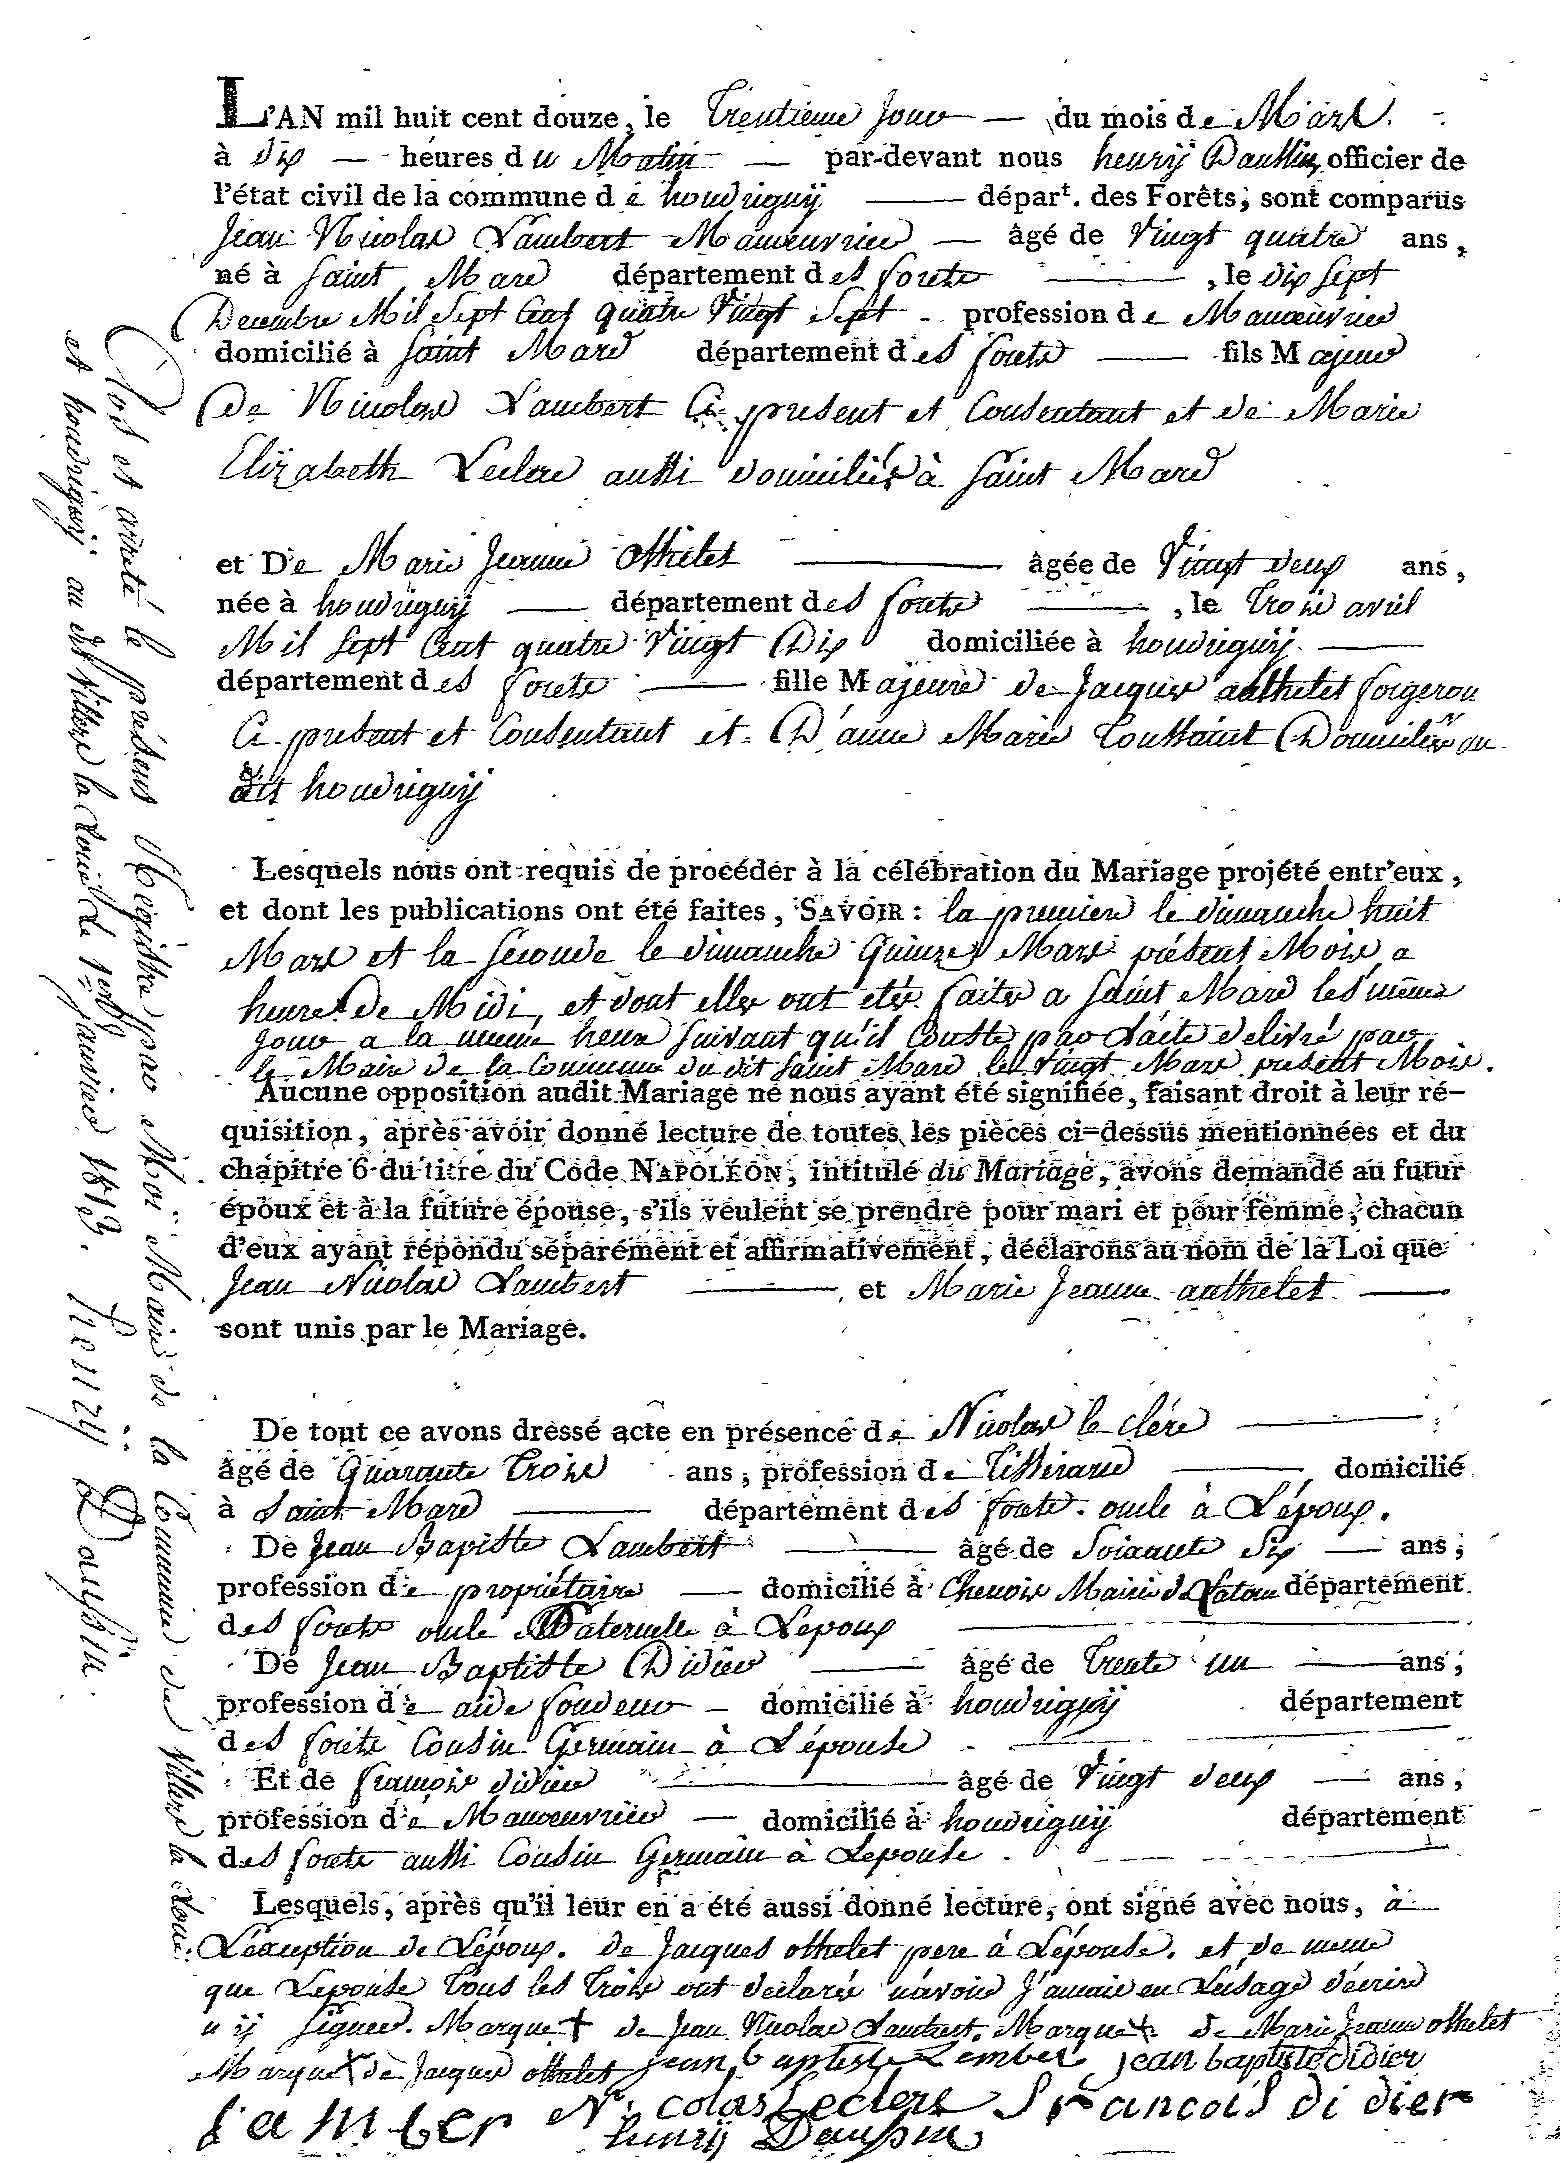 L'AN mil huit cent douze, le Trentieme Jour du mois de Mars
à Dix heures du Matin par-devant nous henrÿ Dauffin, officier de
l'état civil de la commune de houdrignÿ départ. des Forêts, sont comparus
Jean Nicolas Lambert Manœuvrier âgé de Vingt quatre ans,
né à Saint Mard département des forets, le dix sept
Decembre Mil Sept Cent quatre Vingt Sept profession de Manœuvrier
domicilié à Saint Mard département des forets fils Majeur
De Nicolas Lambert Ci present et Consentant et de Marie
Elizabeth Leclere aussi domiciliés à Saint Mard
et De Marie Jeanne Othelet âgée de Vingt deux ans,
née à houdrignÿ département des forets, le Trois avril
Mil Sept Cent quatre Vingt Dix domiciliée à houdrignÿ
département des forets fille Majeure de Jacques authelet forgeron
Ci present et Consentant et D'anne Marie Toussaint Domiciliés au
dit houdrignÿ
Lesquels nous ont requis de procéder à la célébration du Mariage projété entr'eux,
et dont les publications ont été faites, SAVOIR : la premiere le dimanche huit
Mars et la Seconde le dimanche Quinze Mars présent Mois a
heure de Midi, et dont elles ont etés faites a Saint Mard les même
Jour a la même heure suivant qu'il Conste par L'acte delivré par
le Maire de la Commune du dit Saint Mard le Vingt Mars present Mois.
Aucune opposition audit Mariage ne nous ayant été signifiée, faisant droit à leur ré-
quisition, après avoir donné lecture de toutes les pièces ci-dessus mentionnées et du
chapitre 6 du titre du Code NAPOLÉON, intitulé du Mariage, avons demandé au futur
époux et à la future épouse, s'ils veulent se prendre pour mari et pour femme, chacun
d'eux ayant répondu séparément et affirmativement, déclarons au nom de la Loi que
Jean Nicolas Lambert et Marie Jeanne authelet
sont unis par le Mariage.
De tout ce avons dressé acte en présence de Nicolas le clére
âgé de Quarante Trois ans, profession de Tisserand domicilié
à Saint Mard département des forets. oncle à L'époux.
De Jean Baptiste Lambert âgé de Soixante Six ans,
profession de propriétaire domicilié à Chenois Mairie de Latour département
des forets oncle Paternelle à L'epoux
De Jean Baptiste Didier âgé de Trente un ans,
profession de aide fondeur domicilié à houdrignÿ département
des forets Cousin Germain à L'épouse
Et de françois didier âgé de Vingt deux ans,
profession de Manœuvrier domicilié à houdrignÿ département
des forets aussi Cousin Germain à L'epouse.
Lesquels, après qu'il leur en a été aussi donné lecture, ont signé avec nous, à
L'éxception de L'époux. de Jacques othelet pere à L'épouse. et de meme
que L'epouse Tous les Trois ont declarés n'avoir J'amais eu L'usage d'écrire
n ÿ signer. Marque de Jean Nicolas Lambert. Marque de Marie Jeanne othelet
Marque de Jacques othelet jean baptiste Lember jean baptiste didier
Lamber Nicolas Leclere François didier
henrÿ Dauffin
Clos et arreté le présent Régistre par Moi Maire de la Commune de Villers la Loue
et houdrignÿ au dit Villers la Loue le 1er janvier 1813. henrÿ Dauffin.